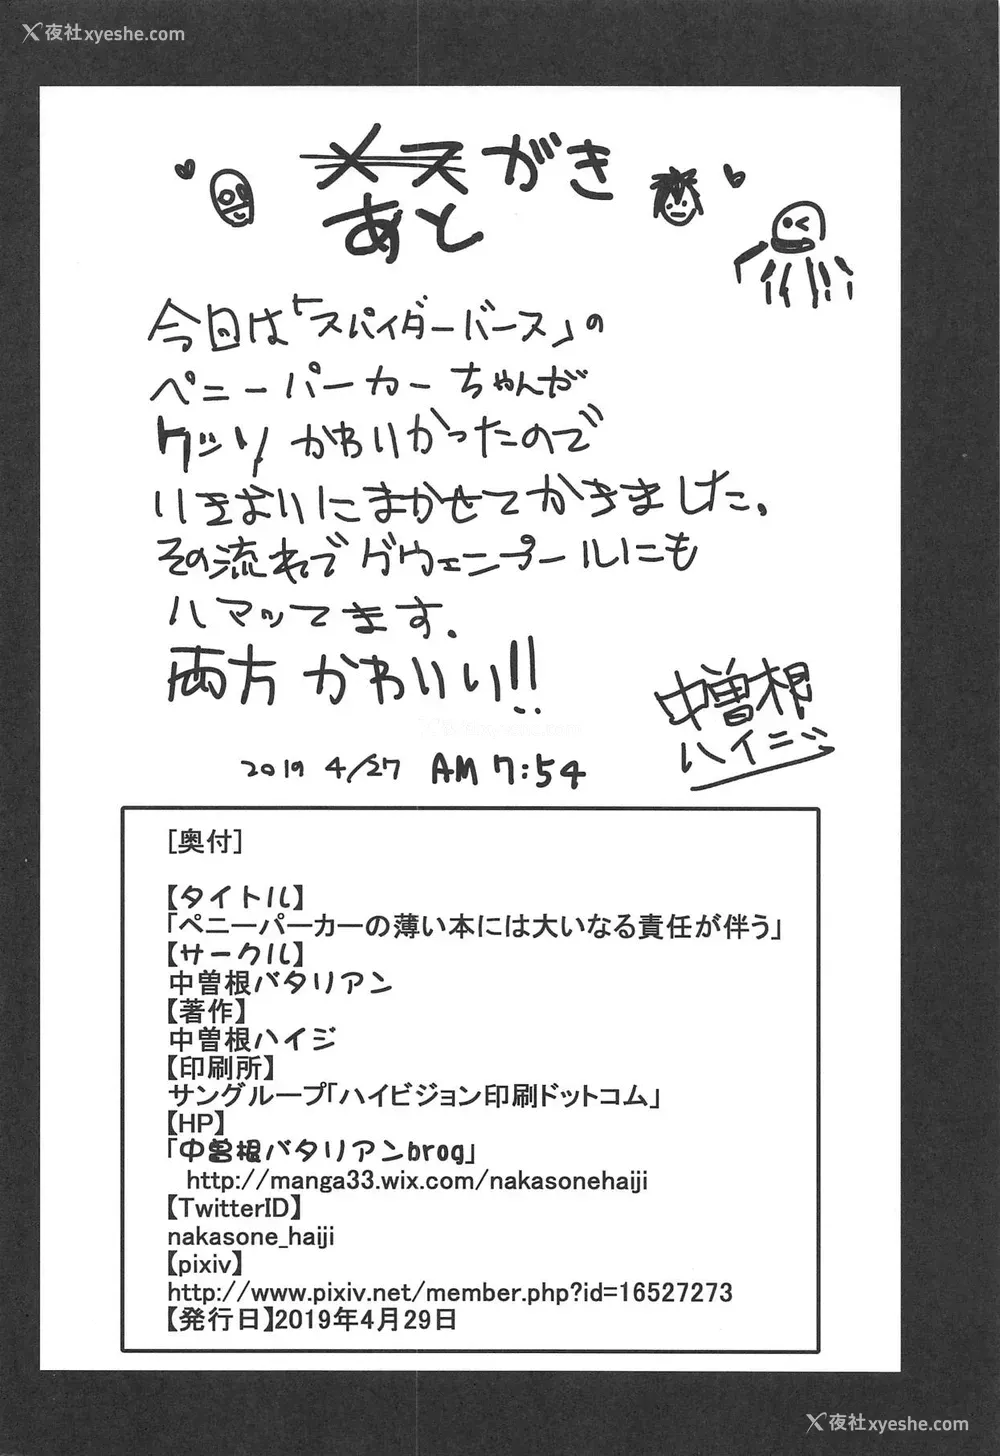 X夜社xyeshe.com
メスがき
あと
今回は「スパイダーバース」の
ペニーパーカーちゃんが
クッソかわいかったので
いきおいにまかせてかきました。
その流れでグウェンプールにも
ハマッてます.
両方かわいい!!
中曽根
ハイジ
2019 4/27 AM 7:54
[奥付]
【タイトル】
「ペニーパーカーの薄い本には大いなる責任が伴う」
【サークル】
中曽根バタリアン
【著作】
中曽根ハイジ
【印刷所】
サングループ「ハイビジョン印刷ドットコム」
【HP】
「中曽根バタリアンbrog」
http://manga33.wix.com/nakasonehaiji
【TwitterID】
nakasone_haiji
【pixiv】
http://www.pixiv.net/member.php?id=16527273
【発行日】2019年4月29日
X夜社xyeshe.com